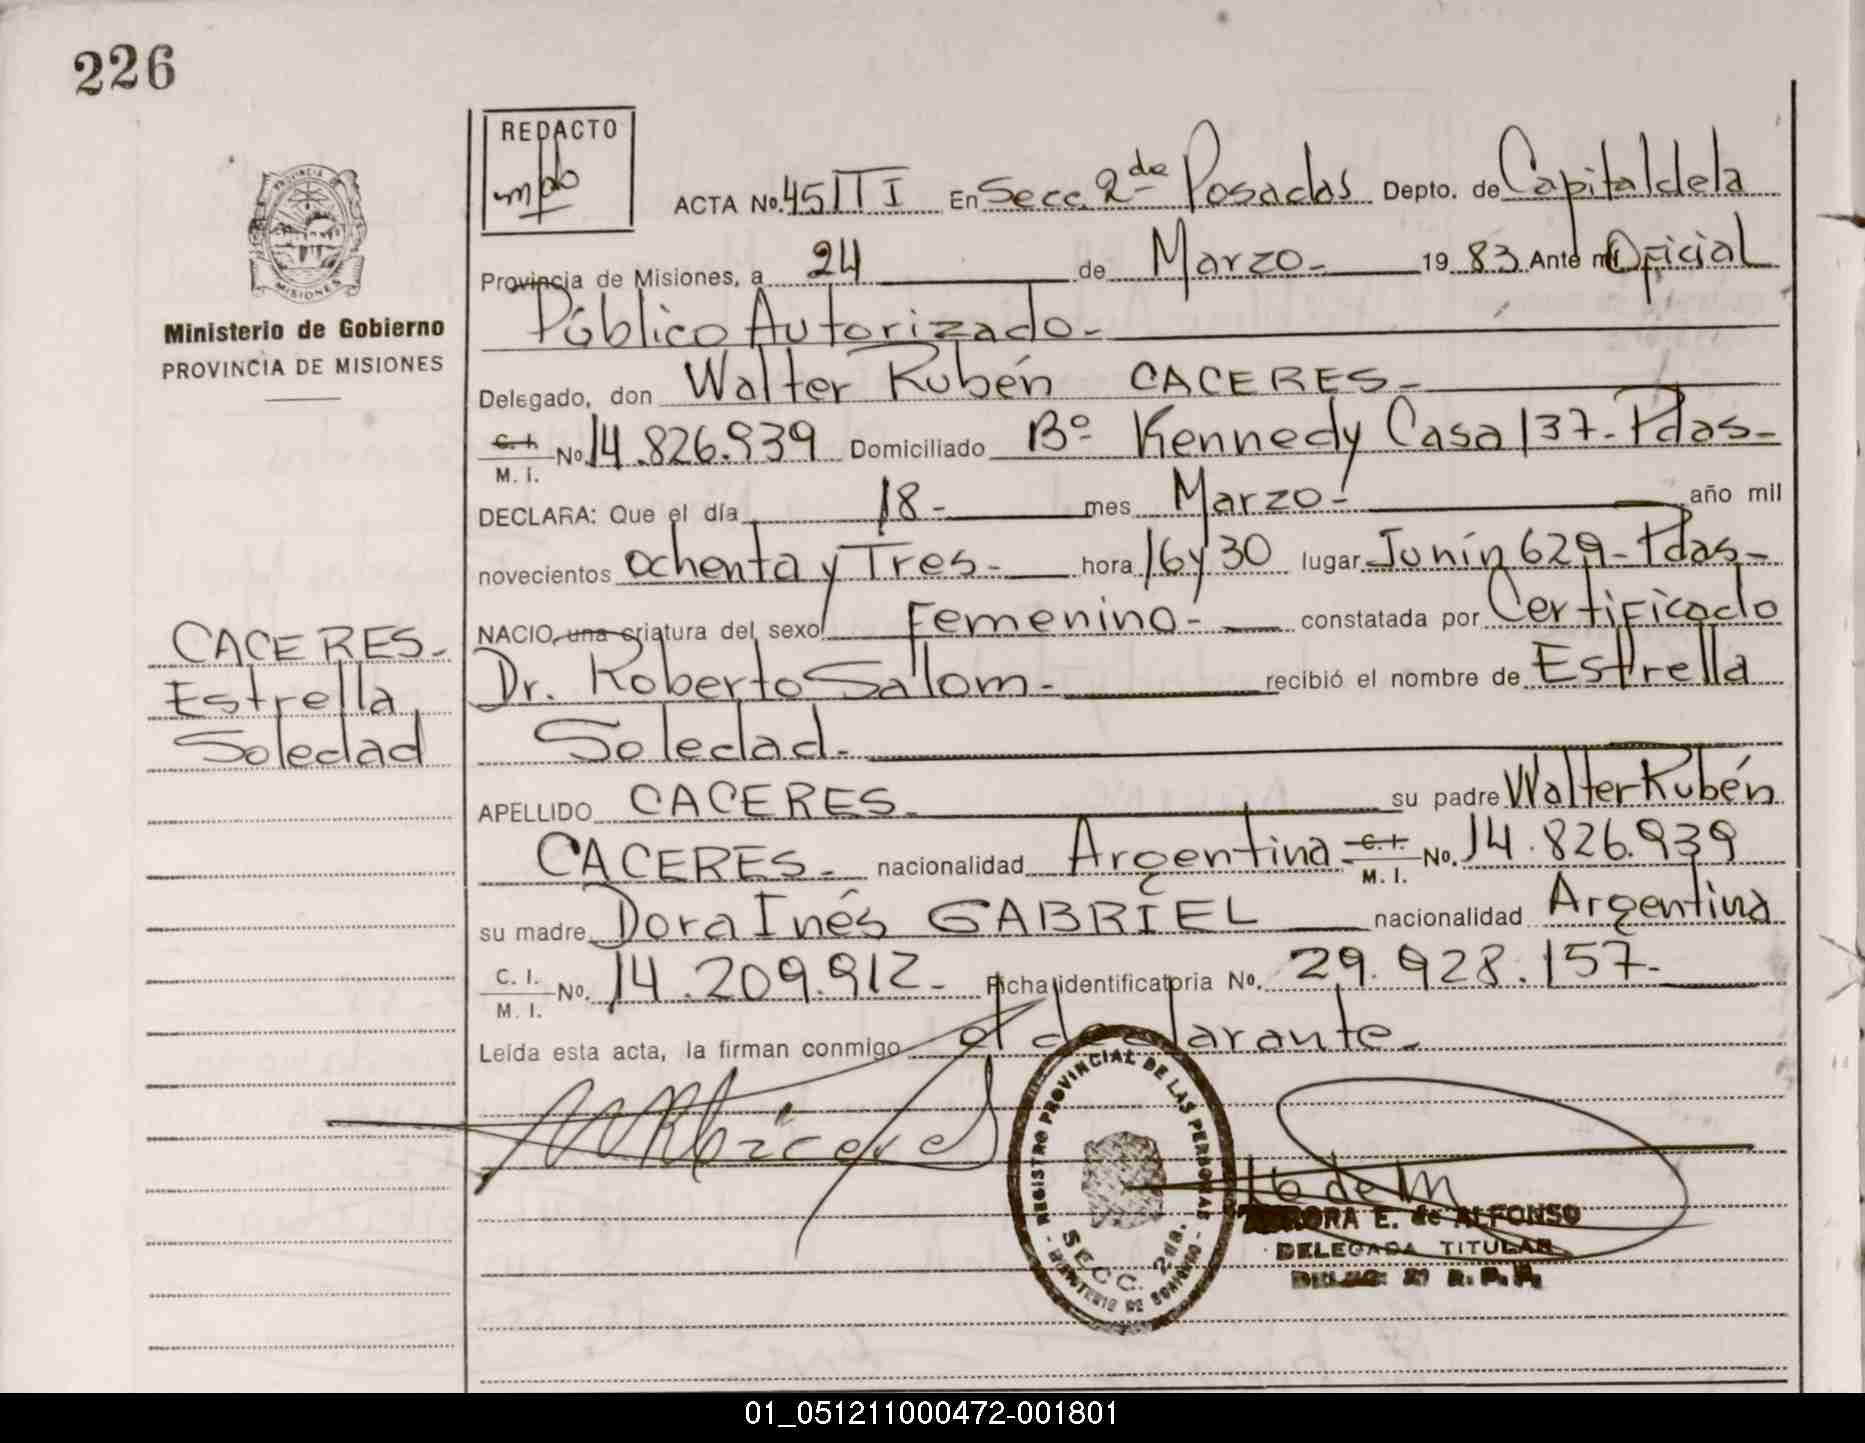 226
REDACTO
mpb
ACTA No. 451TI En Secc. 2da Posadas Depto. de Capital de la
Provincia de Misiones, a 24 de Marzo - 1983. Ante mi Oficial
Público Autorizado -
Delegado, don Walter Rubén CACERES -
C. I. / M. I. No. 14.826.939 Domiciliado Bº Kennedy Casa 137 - Pdas -
DECLARA: Que el día 18 - mes Marzo - año mil
novecientos ochenta y Tres - hora 16 y 30 lugar Junín 629 - Pdas -
NACIO, una criatura del sexo Femenino - constatada por Certificado
Dr. Roberto Salom - recibió el nombre de Estrella
Soledad -
APELLIDO CACERES - su padre Walter Rubén
CACERES - nacionalidad Argentina - C. I. / M. I. No. 14.826.939
su madre Dora Inés GABRIEL nacionalidad Argentina
C. I. / M. I. No. 14.209.912 - Ficha identificatoria No. 29.928.157 -
Leída esta acta, la firman conmigo el declarante -
MISIONES
Ministerio de Gobierno
PROVINCIA DE MISIONES
CACERES -
Estrella
Soledad
REGISTRO PROVINCIAL DE LAS PERSONAS
SECC. 2da.
MINISTERIO DE GOBIERNO
E. de ALFONSO
DELEGADA TITULAR
01_051211000472-001801